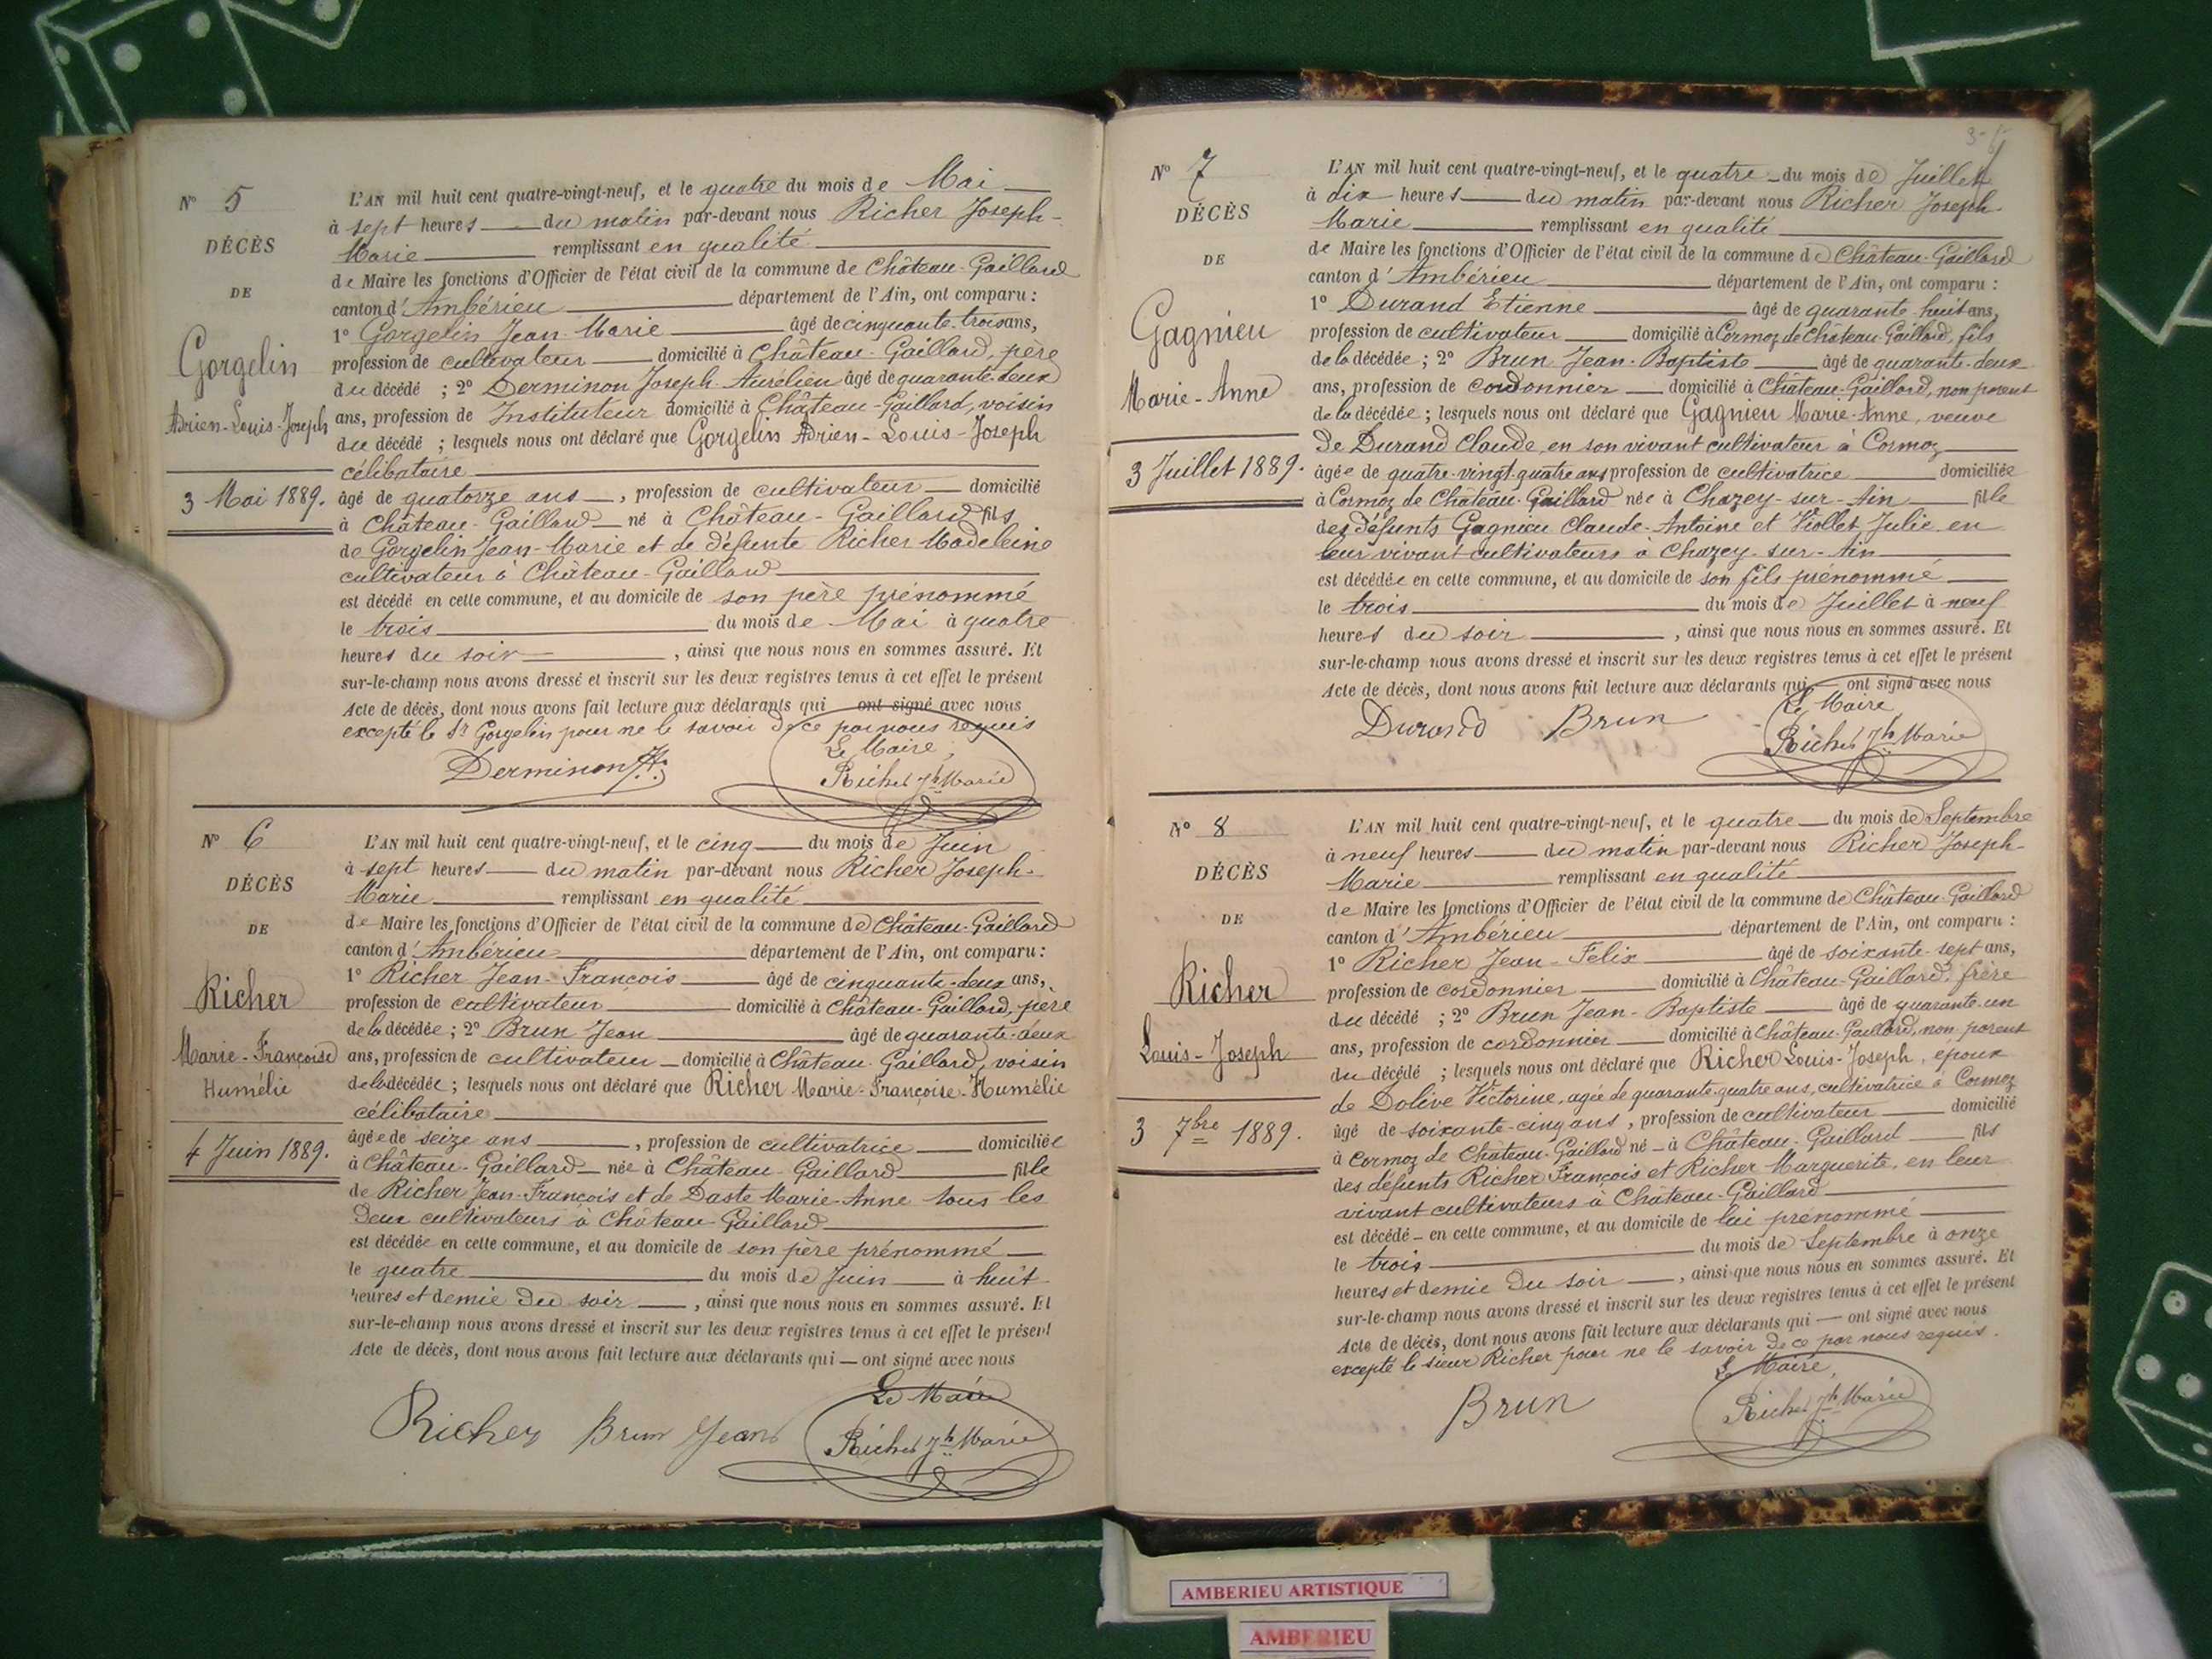 Nº 5
DÉCÈS
DE
Gorgelin
Adrien-Louis-Joseph
3 Mai 1889.
L'AN mil huit cent quatre-vingt-neuf, et le quatre du mois de Mai
à sept heures du matin par-devant nous Richer Joseph-
Marie remplissant en qualité
de Maire les fonctions d'Officier de l'état civil de la commune de Château-Gaillard
canton d'Ambérieu département de l'Ain, ont comparu :
1º Gorgelin Jean-Marie âgé de cinquante-trois ans,
profession de cultivateur domicilié à Château-Gaillard, père
du décédé ; 2º Derminon Joseph-Aurélien âgé de quarante-deux
ans, profession de Instituteur domicilié à Château-Gaillard, voisin
du décédé ; lesquels nous ont déclaré que Gorgelin Adrien-Louis-Joseph
célibataire
âgé de quatorze ans, profession de cultivateur domicilié
à Château-Gaillard né à Château-Gaillard fils
de Gorgelin Jean-Marie et de défunte Richer Madeleine
cultivateur à Château-Gaillard
est décédé en cette commune, et au domicile de son père prénommé
le trois du mois de Mai à quatre
heures du soir, ainsi que nous nous en sommes assuré. Et
sur-le-champ nous avons dressé et inscrit sur les deux registres tenus à cet effet le présent
Acte de décès, dont nous avons fait lecture aux déclarants qui ont signé avec nous
excepté le Sr Gorgelin pour ne le savoir de ce par nous requis
Le Maire,
Derminon Richer Jh Marie
Nº 6
DÉCÈS
DE
Richer
Marie-Françoise
Humélie
4 Juin 1889.
L'AN mil huit cent quatre-vingt-neuf, et le cinq du mois de Juin
à sept heures du matin par-devant nous Richer Joseph-
Marie remplissant en qualité
de Maire les fonctions d'Officier de l'état civil de la commune de Château-Gaillard
canton d'Ambérieu département de l'Ain, ont comparu :
1º Richer Jean-François âgé de cinquante-deux ans,
profession de cultivateur domicilié à Château-Gaillard, père
de la décédée ; 2º Brun Jean âgé de quarante-deux
ans, profession de cultivateur domicilié à Château-Gaillard, voisin
de la décédée ; lesquels nous ont déclaré que Richer Marie-Françoise-Humélie
célibataire
âgée de seize ans, profession de cultivatrice domiciliée
à Château-Gaillard née à Château-Gaillard fille
de Richer Jean-François et de Daste Marie-Anne tous les
deux cultivateurs à Château-Gaillard
est décédée en cette commune, et au domicile de son père prénommé
le quatre du mois de Juin à huit
heures et demie du soir, ainsi que nous nous en sommes assuré. Et
sur-le-champ nous avons dressé et inscrit sur les deux registres tenus à cet effet le présent
Acte de décès, dont nous avons fait lecture aux déclarants qui ont signé avec nous
Le Maire
Richer Brun Jean Richer Jh Marie
Nº 7
DÉCÈS
DE
Gagnieu
Marie-Anne
3 Juillet 1889.
L'AN mil huit cent quatre-vingt-neuf, et le quatre du mois de Juillet
à dix heures du matin par-devant nous Richer Joseph-
Marie remplissant en qualité
de Maire les fonctions d'Officier de l'état civil de la commune de Château-Gaillard
canton d'Ambérieu département de l'Ain, ont comparu :
1º Durand Etienne âgé de quarante-huit ans,
profession de cultivateur domicilié à Cormoz de Château-Gaillard, fils
de la décédée ; 2º Brun Jean-Baptiste âgé de quarante-deux
ans, profession de cordonnier domicilié à Château-Gaillard, non parent
de la décédée ; lesquels nous ont déclaré que Gagnieu Marie-Anne, veuve
de Durand Claude, en son vivant cultivateur à Cormoz
âgée de quatre-vingt-quatre ans profession de cultivatrice domiciliée
à Cormoz de Château-Gaillard née à Chazey-sur-Ain fille
des défunts Gagnieu Claude-Antoine et Viollet Julie en
leur vivant cultivateurs à Chazey-sur-Ain
est décédée en cette commune, et au domicile de son fils prénommé
le trois du mois de Juillet à neuf
heures du soir, ainsi que nous nous en sommes assuré. Et
sur-le-champ nous avons dressé et inscrit sur les deux registres tenus à cet effet le présent
Acte de décès, dont nous avons fait lecture aux déclarants qui ont signé avec nous
Le Maire
Durand Brun Richer Jh Marie
Nº 8
DÉCÈS
DE
Richer
Louis-Joseph
3 7bre 1889.
L'AN mil huit cent quatre-vingt-neuf, et le quatre du mois de Septembre
à neuf heures du matin par-devant nous Richer Joseph-
Marie remplissant en qualité
de Maire les fonctions d'Officier de l'état civil de la commune de Château-Gaillard
canton d'Ambérieu département de l'Ain, ont comparu :
1º Richer Jean-Felix âgé de soixante-sept ans,
profession de cordonnier domicilié à Château-Gaillard, frère
du décédé ; 2º Brun Jean-Baptiste âgé de quarante-un
ans, profession de cordonnier domicilié à Château-Gaillard, non parent
du décédé ; lesquels nous ont déclaré que Richer Louis-Joseph, époux
de Dolive Victorine, agée de quarante-quatre ans, cultivatrice à Cormoz
âgé de soixante-cinq ans, profession de cultivateur domicilié
à Cormoz de Château-Gaillard né à Château-Gaillard fils
des défunts Richer François et Richer Marguerite, en leur
vivant cultivateurs à Château-Gaillard
est décédé en cette commune, et au domicile de lui prénommé
le trois du mois de Septembre à onze
heures et demie du soir, ainsi que nous nous en sommes assuré. Et
sur-le-champ nous avons dressé et inscrit sur les deux registres tenus à cet effet le présent
Acte de décès, dont nous avons fait lecture aux déclarants qui ont signé avec nous
excepté le sieur Richer pour ne le savoir de ce par nous requis.
Le Maire,
Brun Richer Jh Marie
AMBERIEU ARTISTIQUE
AMBERIEU